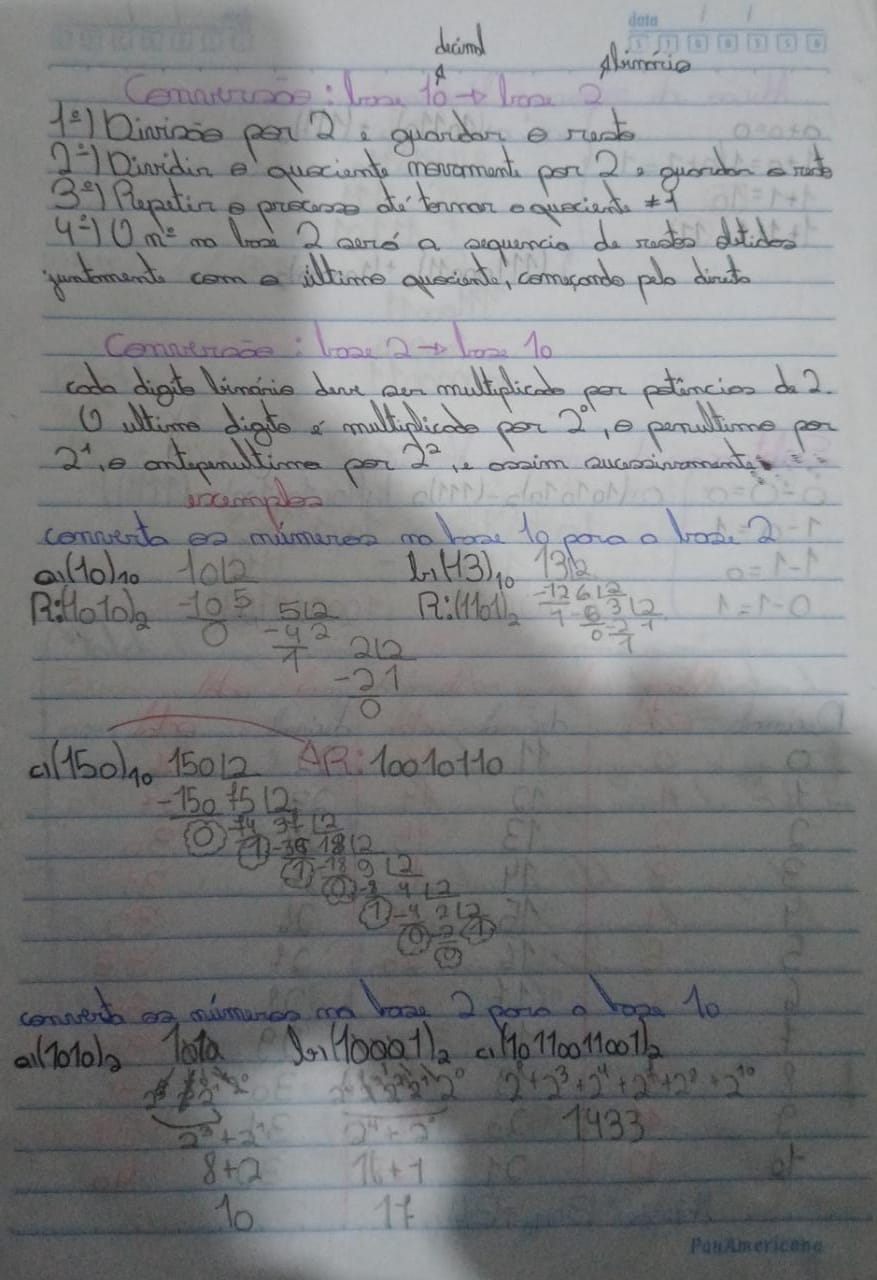 data
decimal
binário
Conversão: base 10 → base 2
1º) Divisão por 2 e guardar o resto
2º) Dividir o quociente novamente por 2 e guardar o resto
3º) Repetir o processo até tornar o quociente ≠ 1
4º) O nº na base 2 será a sequencia de restos obtidos
juntamente com o último quociente, começando pela direita
Conversão: base 2 → base 10
cada digito binário deve ser multiplicado por potências de 2.
O ultimo digito é multiplicado por 2⁰, o penultimo por
2¹, o antepenultimo por 2², e assim sucessivamente.
exemplos
converta os números na base 10 para a base 2
a) (10)₁₀ 10|2 b) (13)₁₀ 13|2
R: (1010)₂ -10 5 5|2 R: (1101)₂ -12 6|2
0 -4 2 1 -6 3|2
1 2|2 0 -2 1
-2 1 1
0
c) (150)₁₀ 150|2 R: 10010110
-150 75|2
0 -74 37|2
1 -36 18|2
1 -18 9|2
0 -8 4|2
1 -4 2|2
0 -2 1
0
converta os números na base 2 para a base 10
a) (1010)₂ 1010 b) (10001)₂ c) (10110011001)₂
2³ 2² 2¹ 2⁰ 2⁴ 2³ 2² 2¹ 2⁰ 2⁰+2³+2⁴+2⁷+2⁸+2¹⁰
2³+2¹ 2⁴+2⁰ 1433
8+2 16+1
10 17
PanAmericana